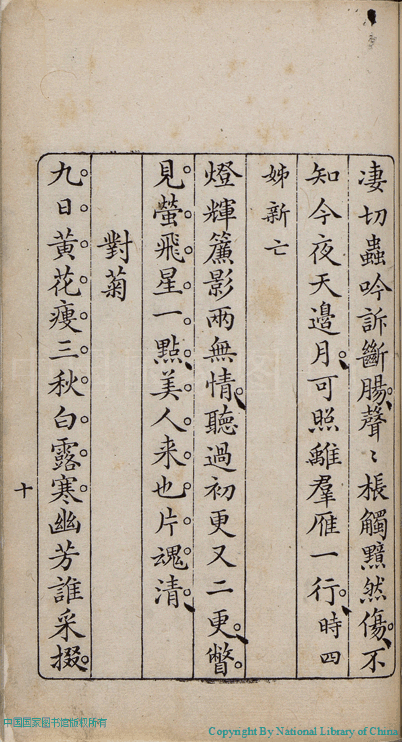 淒切蟲吟訴斷腸聲〻棖觸黯然傷不
知今夜天邊月可照離羣雁一行時四
姊新亡
燈輝簾影兩無情聽過初更又二更瞥
見螢飛星一點美人来也片魂清
對菊
九日黃花瘦三秋白露寒幽芳誰采掇
十
中国国家图书馆版权所有
Copyright By National Library of China